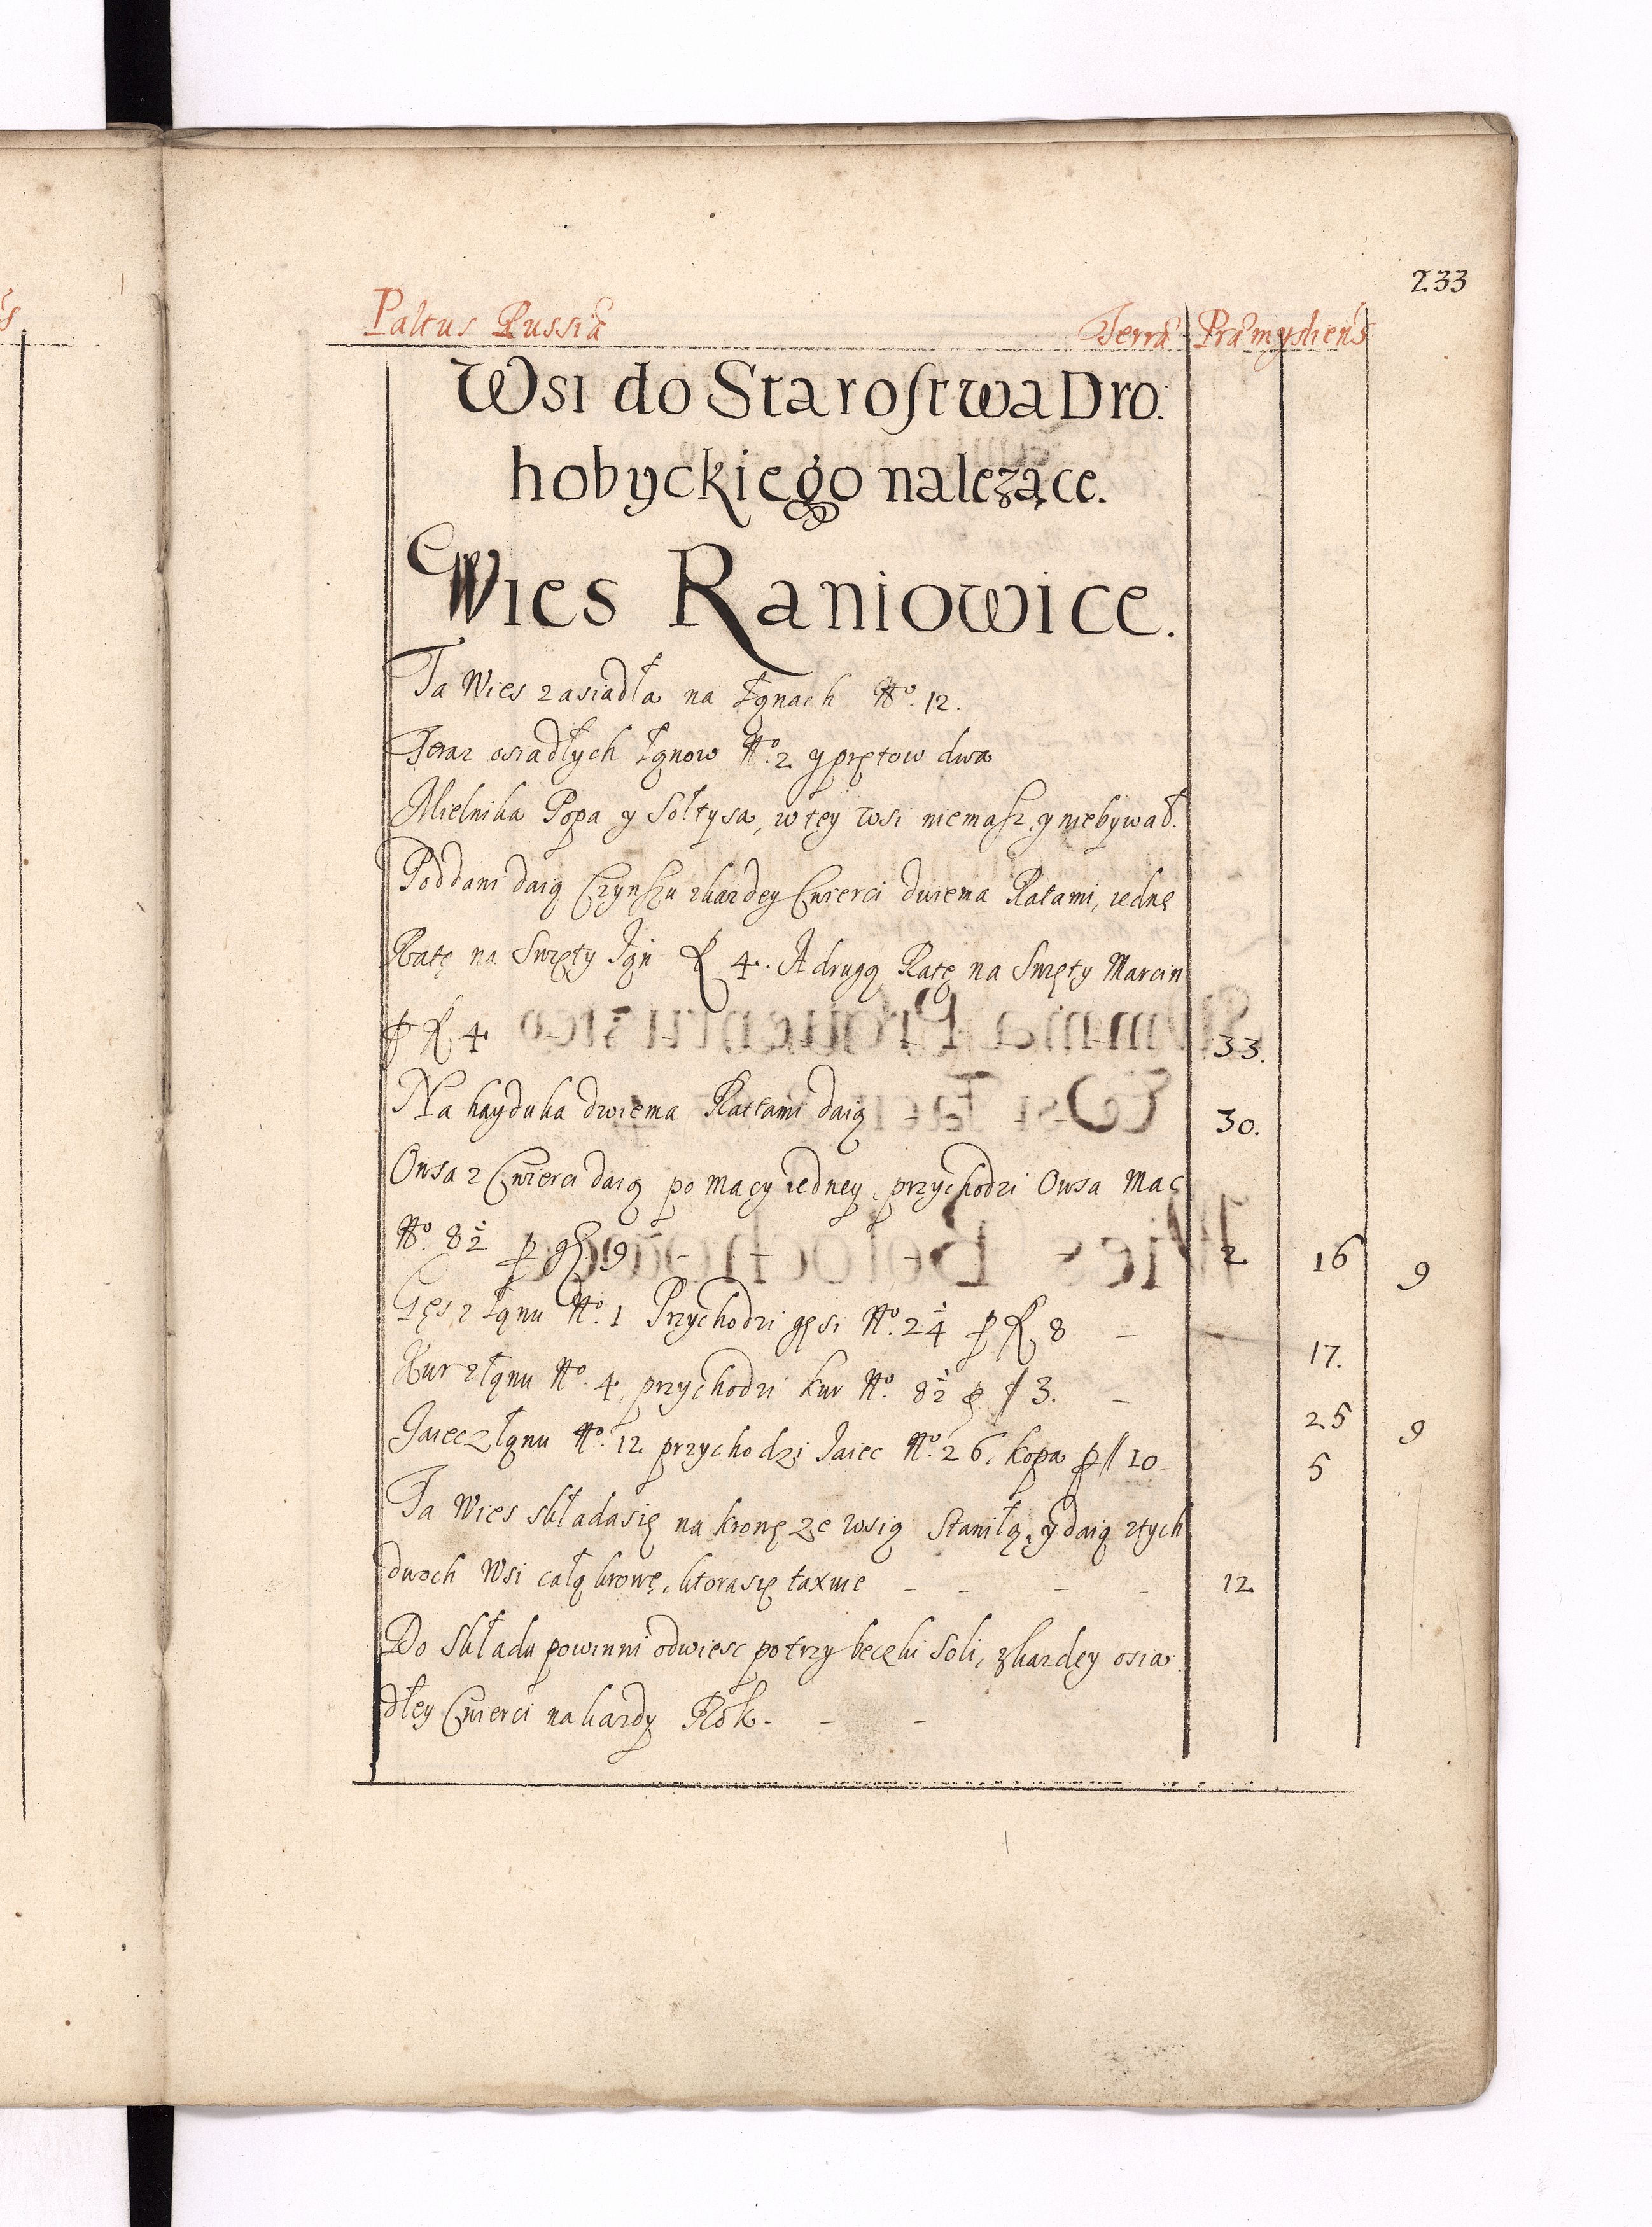 233
Paltus Russiæ Terræ Præmysliens
Wsi do Starostwa Dro:
hobyckiego należące.
Wies Raniowice.
Ta Wies zasiadła na Łąnach No. 12.
Teraz osiadłych Łąnow No. 2 y prętow dwa
Mielnika Popa y Sołtysa, w tey wsi niemasz, y niebywał.
Poddani daią Czynszu zkazdey Cwierci dwiema Ratami, iednę
Ratę na Swięty Ian 4. A drugą Ratę na Swięty Marcin
p 4 33.
Na hayduka dwiema Rattami daią 30.
Owsa z Cwierci daią po macy iedney, przychodzi Owsa Mac
No. 8½ p gr 9 2 16 9
Gęs z Łąnu No. 1 Przychodzi gęsi No. 2¼ p 8 – 17.
Kur z łąnu No. 4, przychodzi kur No. 8½ p 3. – 25 9
Iaiec z łąnu No. 12 przychodzi Iaiec No. 26. kopa p 10 – 5
Ta Wies składasię na krowę ze wsią Staniłą, y daią ztych
dwoch Wsi całą krowę, ktora się taxuie – – – – 12
Do Składu powinni odwiesc po trzy beczki Soli, z kazdey osia:
dłey Cwierci na kazdy Rok. – –